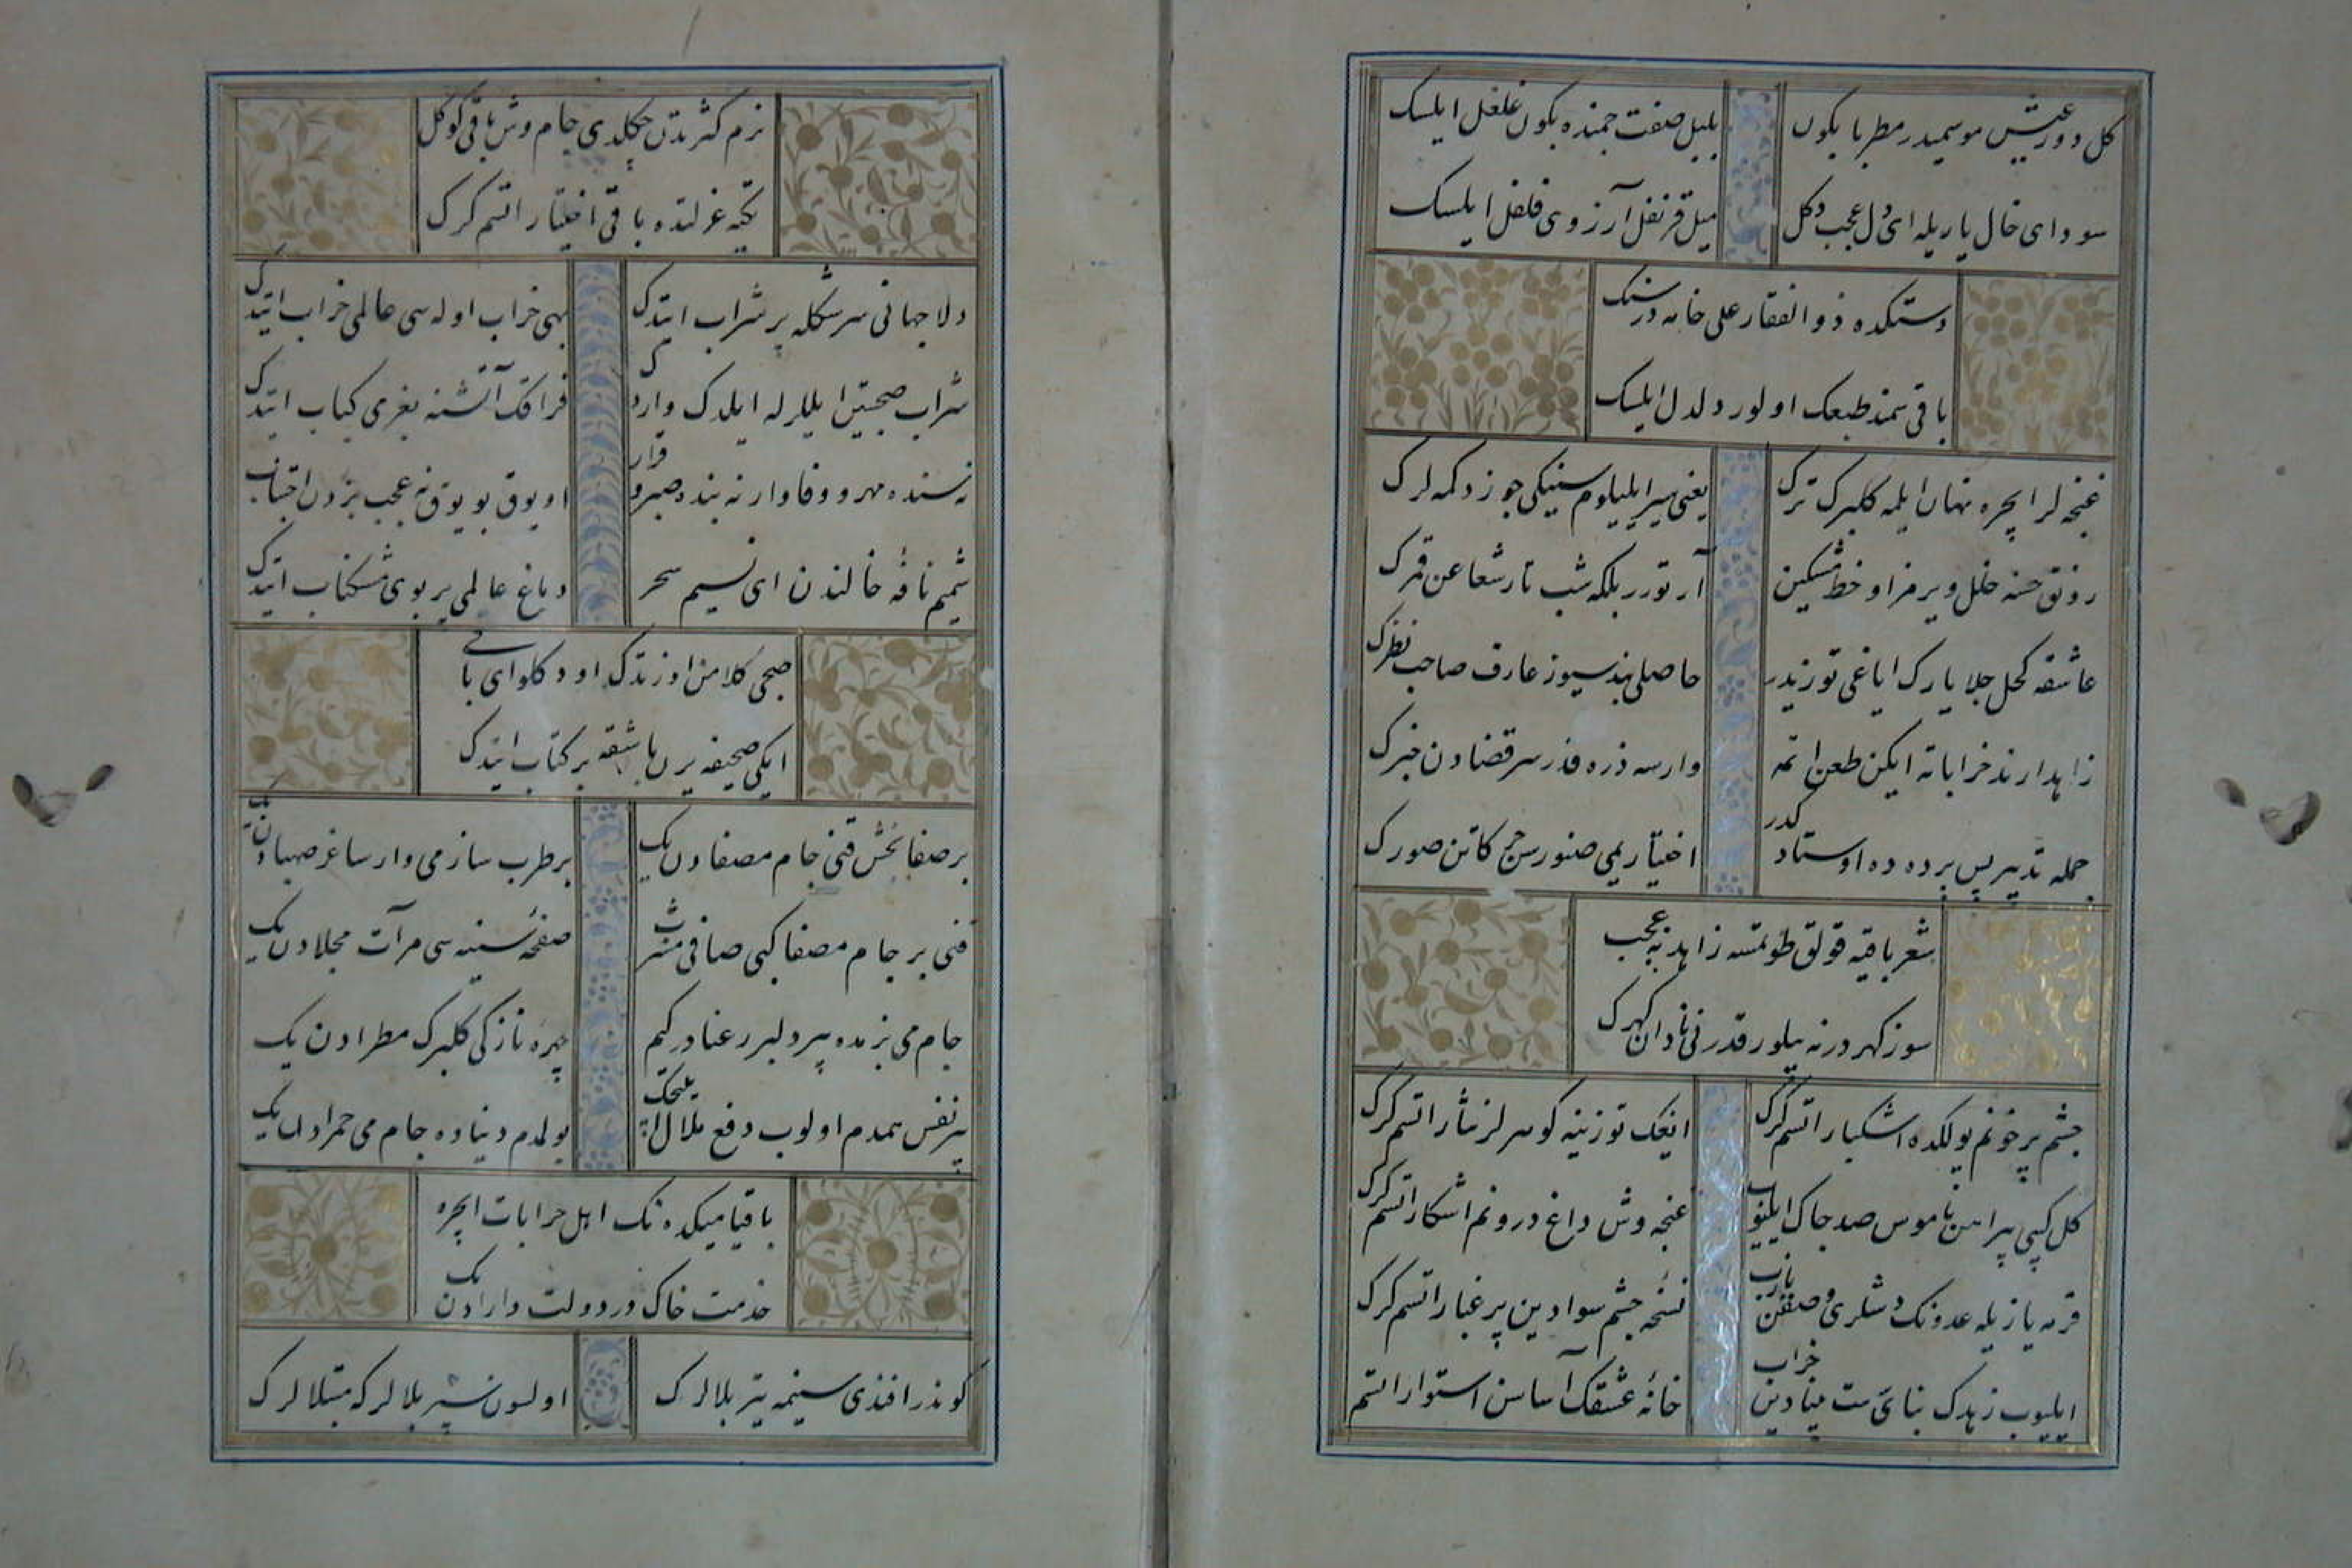 كل دور عيش موسميدر مطربا بكون
بلبل صفت چمنده بكون غلغل ايلسك
سوداى خال ياريله اى دل عجب دكل
ميل قرنفل آرزوى فلفل ايلسك
دستكده ذو الفقار على خامه در سنك
باقى سمند طبعك اولور دلدل ايلسك
غنچه لر ايچره نهان ايلمه كلبرك ترك
يعنى سير ايليلوم سينكى چوز دكمه لرك
رونق حسنه خلل ويرمز او خط مشكين
آرتورر بلكه شب تار شعاعن قمرك
عاشقه كحل جلا يارك اياغى توزيدر
حاصلى بنده سيوز عارف صاحب نظرك
زاهدا رند خراباته ايكن طعن اتمه
وارسه ذره قدر سر قضادن خبرك
جمله تدبير پس پرده ده اوستاد كدر
اختيارىمى صنورسن حركاتن صورك
شعر باقيه قولق طوتمسه زاهد نه عجب
سوز كهردر نه بيلور قدرنى نادان كهرك
چشم پر خونم يولكده اشكبار اتسم كرك
اياغك توزينه كوهرلر نثار اتسم كرك
كل كبى پيراهن ناموس صد چاك ايليوب
غنچه وش داغ درونم اشكار اتسم كرك
قرمه يازيله عدونك دشلرى وصفن يازب
نسخه چشم سوادين پر غبار اتسم كرك
ايليوب زهدك بناى سست بنيادين خراب
خانه عشقك اساسن استوار اتسم
بزم كثرتدن چكلدى جام وش باقى كوكل
تكيه عزلتده باقى اختيار اتسم كرك
دلا جهانى سرشكله پر شراب ايتدك
يهى خراب اوله سى عالمى خراب ايتدك
شراب صحبتين ايللرله ايلدك وارد
فراقك آتشنه بغرمى كباب ايتدك
نه سنده مهر و وفا وار نه بنده صبر و قرار
او يوق بو يوق نه عجب بزدن اجتناب
شميم نافه خالندن اى نسيم سحر
دماغ عالمى پر بوى مشكناب ايتدك
صبحى كلامن اوزتدك اودكلو اى باقى
ايكى صحيفه يرن باشقه بر كتاب ايتدك
بر صفا بخش قنى جام مصفادن يك
بر طرب ساز مى وار ساغر صهبادن يك
قنى بر جام مصفا كبى صافى مشرب
صفحه سينه سى مرآت مجلادن يك
جام مى بزمده بر دلبر رعنادركيم
چهره نازكى كلبرك مطرادن يك
بر نفس همدم اولوب دفع ملال ايليجك
بولمدم دنياده جام مى حمرادن يك
باقيا ميكده نك اهل خرابات ايچره
خدمت خاك در دولت دارادن يك
كوندر افندى سينه مه تير بلالرك
اولسون سپر بلالركه مبتلالرك